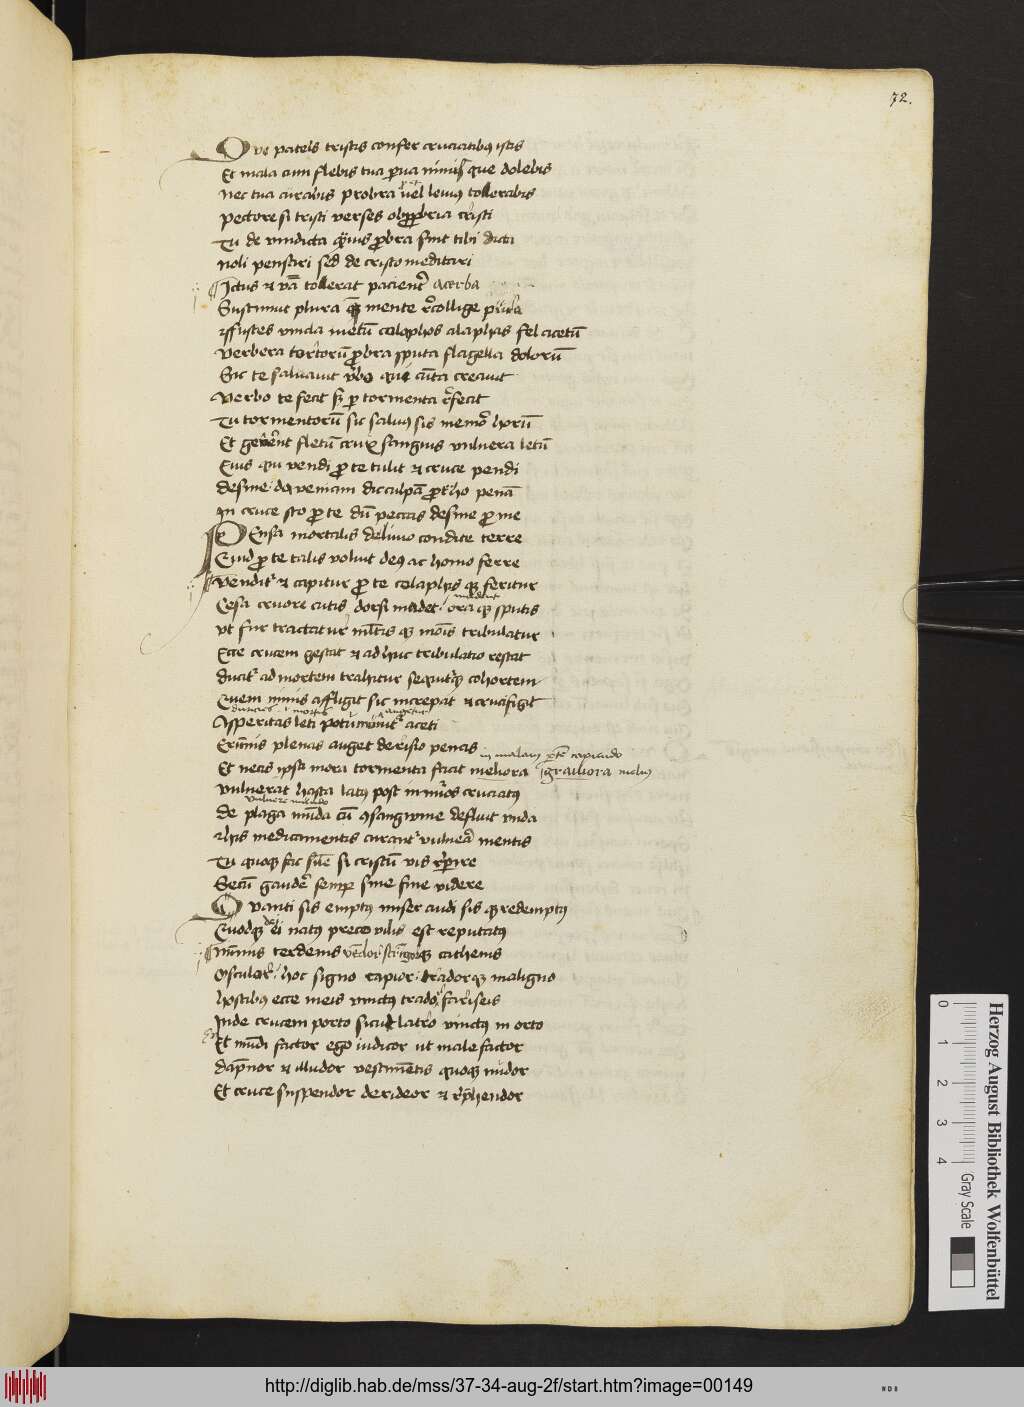 72.
Que pateris tristis confer cruciatibus istis
Et mala cum flebis tua parua nimisque dolebis
Nec tua curabis probra uel leuius tollerabis
Pectore si tristi verses obprobria cristi
Tu de vindicta quamuis probra sint tibi dicta
Noli pensari sed de cristo meditari
Ictus et tollerat pacienter acerba
Sustinuit plura que mente recollige
fustes vincla metum colaphos alaphas fel acetum
Verbera tortorum probra sputa flagella dolorum
Sic te saluauit verbo qui cuncta creauit
Verbo te fecit sed per tormenta refecit
Tu tormentorum sic saluus sis memor horum
Et fletum crux sanguis vulnera letum
Eius qui vendi pro te tulit et cruce pendi
desine veniam dic culpam penam
In cruce sto pro te dum peccas desine pro me
Pensa mortalis de limo condite terre
Quid pro te talis voluit deus ac homo ferre
Venditur et capitur pro te colaphis que feritur
Cesa cruore cutis dorsi madet ora que sputis
Vt fur tractatur multis que modis tribulatur
Ecce crucem gestat et adhuc tribulatio restat
Ducitur ad mortem trahitur sequiturque cohortem
Quem nimis affligit sic increpat et crucifigit
Asperitas leti potum aceti
Erumnis plenas auget derisio penas
in malam partem capiendo
Et necis ipsa mora tormenta facit meliora grauiora melius
Vulnerat hasta latus post nimios cruciatus
vulnere
De plaga munda cum sanguine defluit vnda
His medicamentis curantur vulnera mentis
Tu quoque fac sume si cristum vis reperire
Secum gaudere semper sine fine videre
Quanti sis emptus miser audi sis que redemptus
Quodque dei natus precio vilis est reputatus
Nummis terdenis vendor stringorque cathenis
Osculor hoc signo rapior trador que maligno
Hostibus ecce meis vinctus trador fariseis
Inde crucem porto sicut latro vinctus in orto
Et mundi factor ego iudicor ut malefactor
Dampnor et illudor vestimentis quoque nudor
Et cruce suspendor derideor et reprehendor
Herzog August Bibliothek Wolfenbüttel
0 1 2 3 4
Gray Scale
http://diglib.hab.de/mss/37-34-aug-2f/start.htm?image=00149